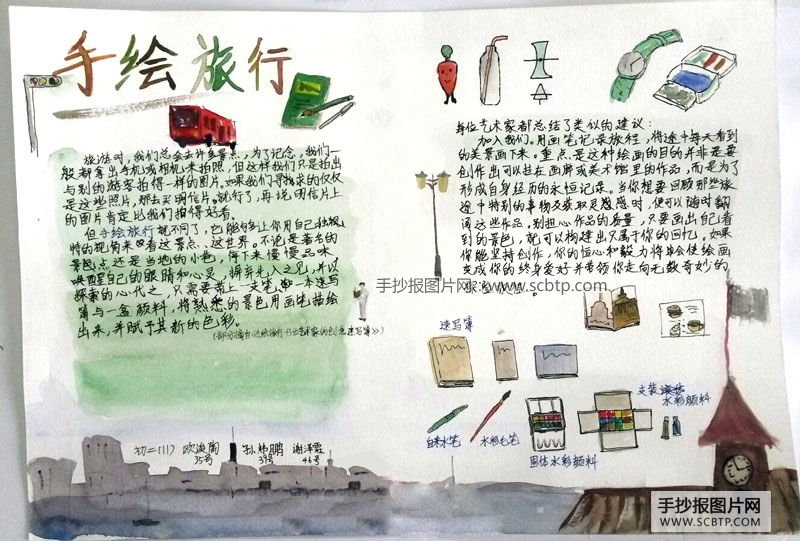 手绘旅行
旅游时,我们总会去许多景点,为了记念,我们一
般都拿出手机或相机来拍照,但这样我们只是拍出
与别的游客拍得一样的图片。如果我们寻找求的仅仅
是这些照片,那去买明信片。就行了,再说明信片上
的图片肯定比我们拍得好看。
但手绘旅行就不同了,它能够让你用自己独
特的视角来看这景点、这世界。不论是著名的
景点还是当地的小巷,停下来慢慢品味
唤醒自己的眼睛和心灵。摒弃先入之见,并以
探索的心代之,只需要带上一支笔,一本速写
簿与一盒颜料,将熟悉的景色用画笔描绘
出来,并赋予其新的色彩。
初二(11) 欧涣陶 35号
孙炜鹏 39号
谢泽霞 46号
每位艺术家都总结了类似的建议:
加入我们。用画笔记录旅程,将途中每天看到
的美景画下来。重点是这种绘画的目的并非是要
创作出可以挂在画廊或美术馆里的作品,而是为了
形成自身经历的永恒记录。当你想要回顾那些旅
途中特别的事物及获取灵感时,便可以随时翻
阅这些作品。别担心作品的质量,只要画出自己看
到的景色,就可以构建出只属于你的回忆。如果
你能坚持创作,你的恒心和毅力将会使绘画
变成你的终身爱好并带领你走向无数奇妙的
手抄报图片网:www.scbtp.com
速写簿
自来水笔
水彩毛笔
固体水彩颜料
支装
水彩颜料
手抄报图片网
WWW.SCBTP.COM